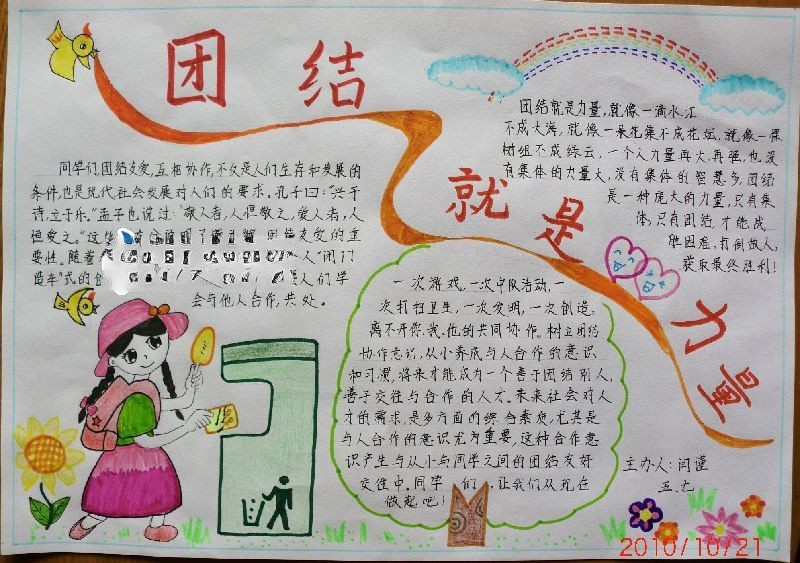 团结
就是
力量
同学们团结友爱,互相协作,不仅是人们生存和发展的
条件,也是现代社会发展对人们的要求。孔子曰:“兴于
诗,立于乐。”孟子也说过:“敬人者,人恒敬之,爱人者,人
恒爱之。”这
团结友爱的重
要性。随着
人“闭门
造车”式的
是人们学
会与他人合作,共处。
团结就是力量,就像一滴水汇
不成大海,就像一朵花集不成花坛,就像一棵
树组不成绿云,一个人力量再大,再强,也没
有集体的力量大,没有集体的智慧多,团结
是一种庞大的力量,只有集
体,只有团结,才能战
胜困难,打倒敌人,
获取最终胜利!
一次游戏,一次中队活动,一
次打扫卫生,一次发明,一次创造,
离不开你、我、他的共同协作。树立团结
协作意识,从小养成与人合作的意识
和习惯,将来才能成为一个善于团结别人,
善于交往与合作的人才。未来社会对人
才的需求,是多方面的综合素质,尤其是
与人合作的意识尤为重要,这种合作意
识产生与从小与同学之间的团结友好
交往中。同学们,让我们从现在
做起吧!
主办人:闫谨
五.九
2010/10/21